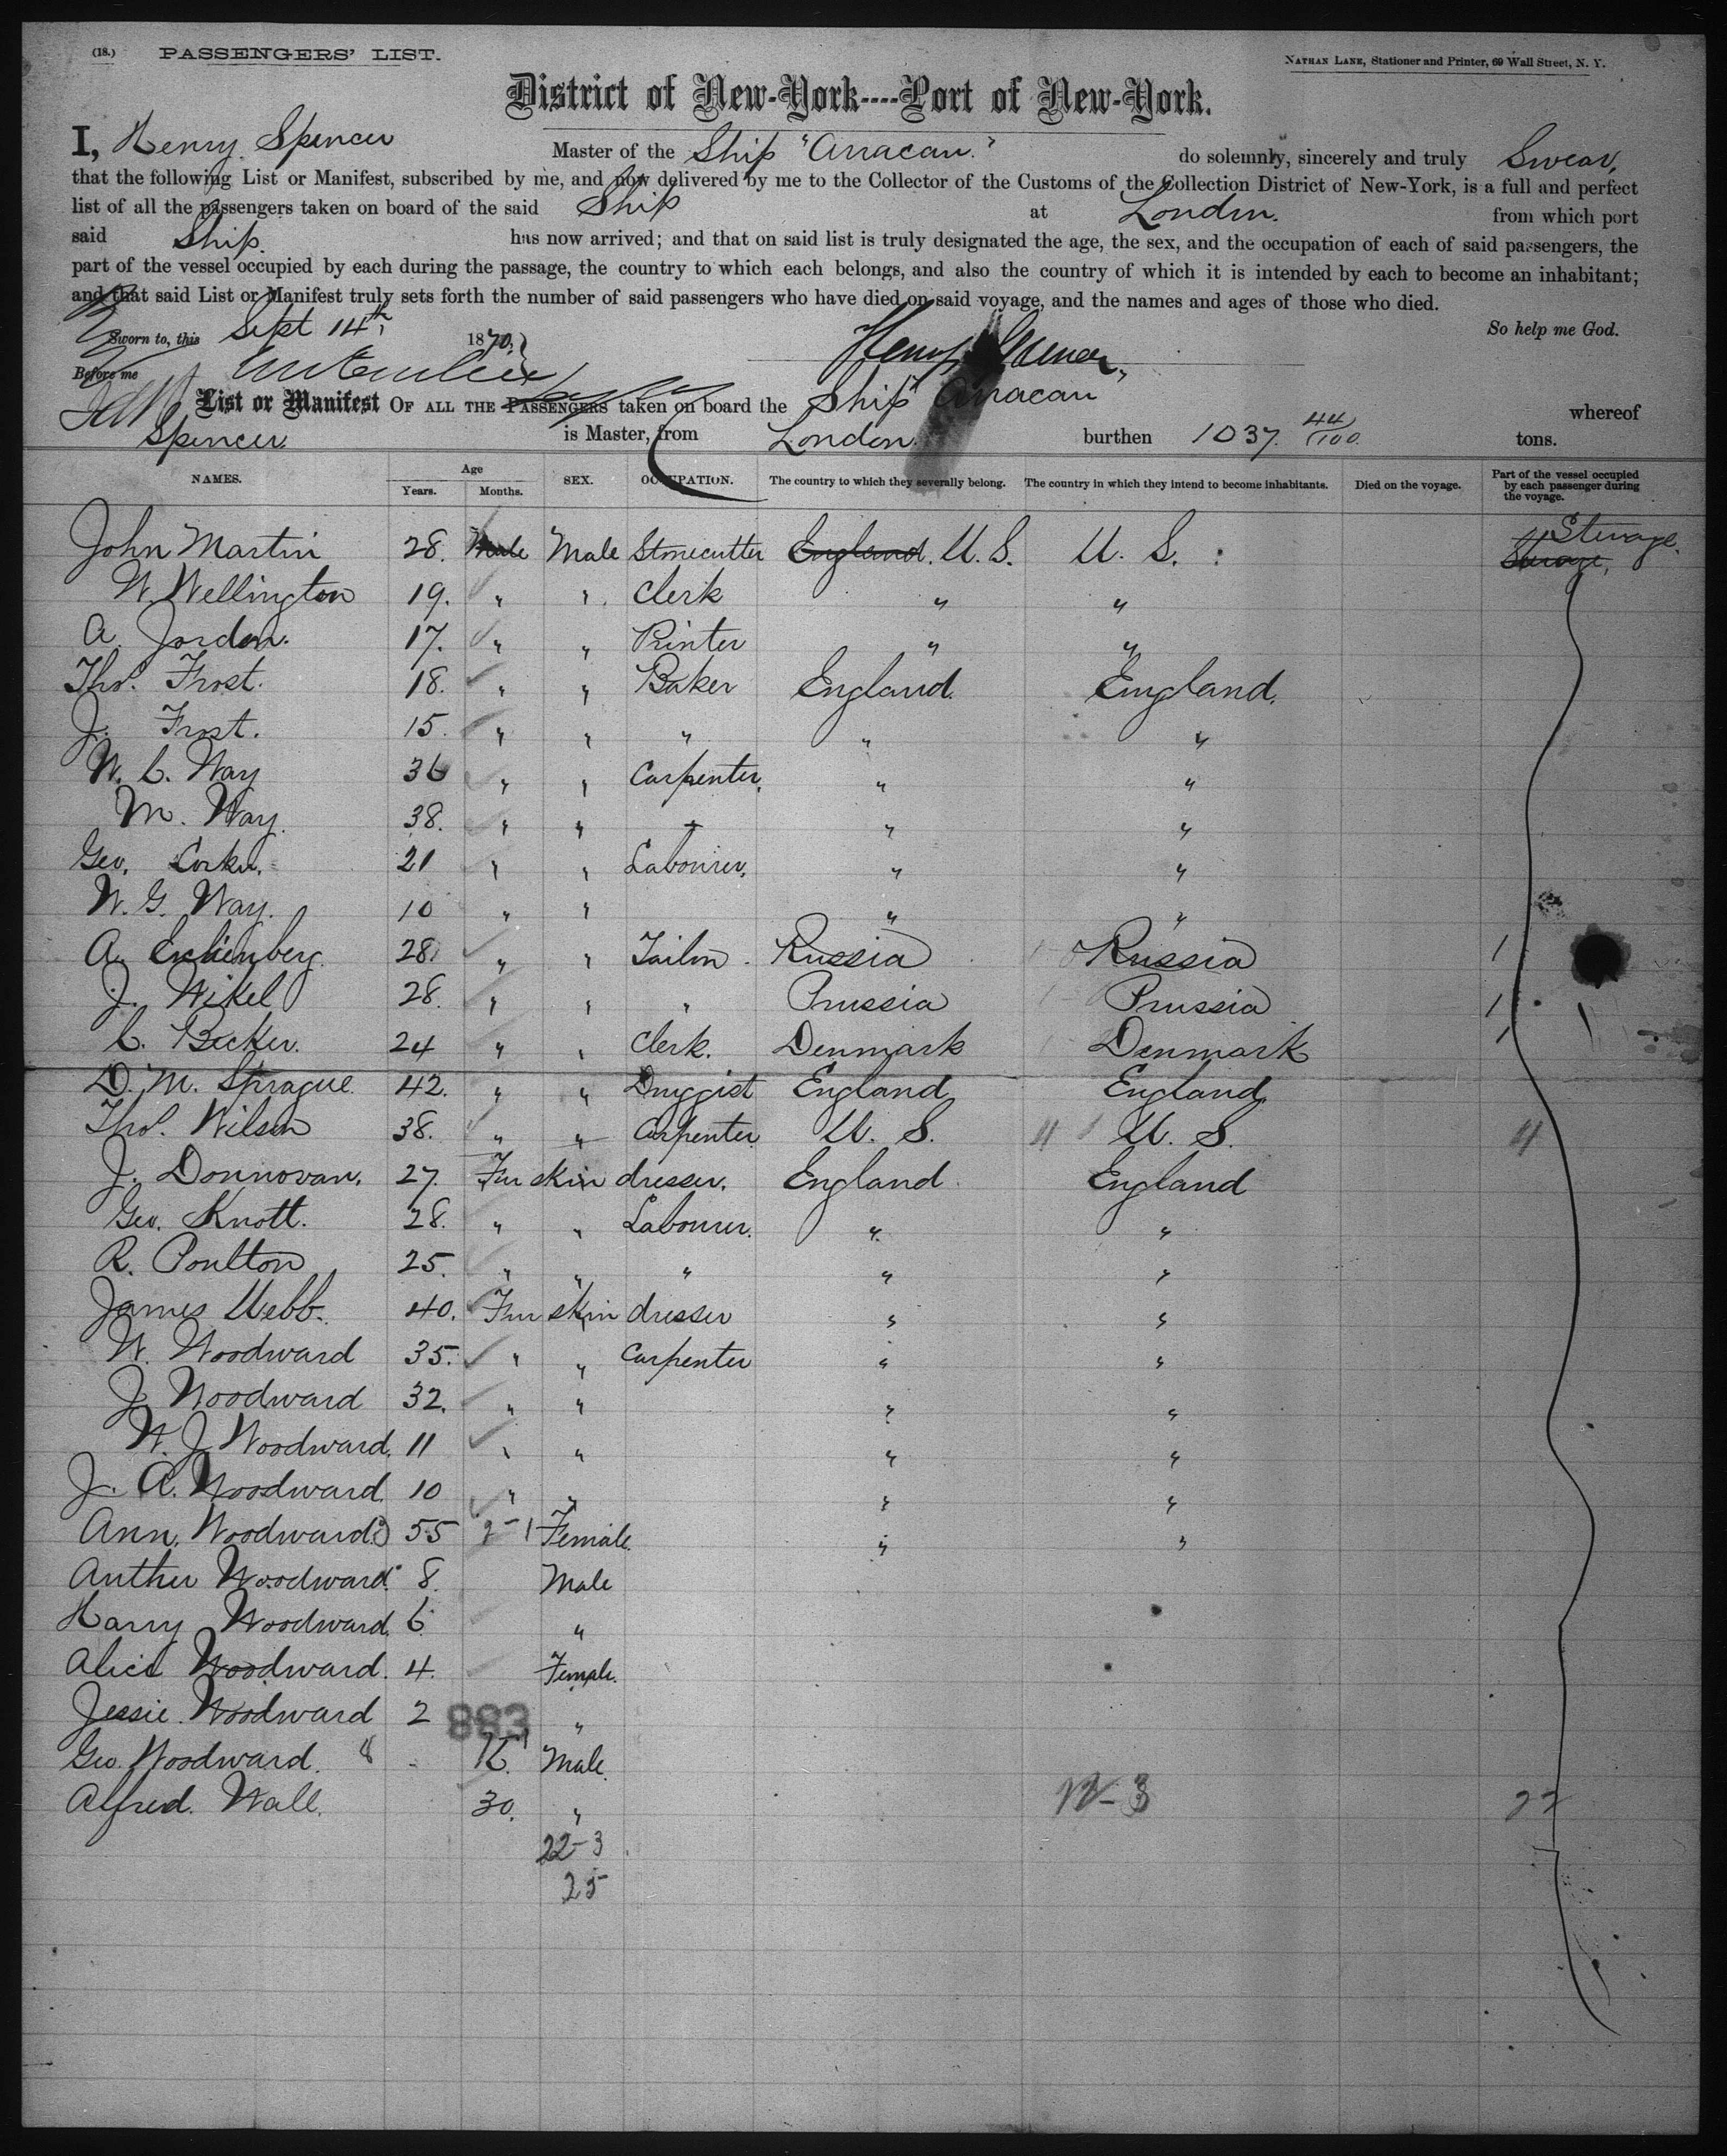 (18.) PASSENGERS' LIST. NATHAN LANE, Stationer and Printer, 69 Wall Street, N. Y.
District of New-York----Port of New-York.
I, Henry Spencer Master of the Ship "Arracan." do solemnly, sincerely and truly Swear,
that the following List or Manifest, subscribed by me, and now delivered by me to the Collector of the Customs of the Collection District of New-York, is a full and perfect
list of all the passengers taken on board of the said Ship at London. from which port
said Ship. has now arrived; and that on said list is truly designated the age, the sex, and the occupation of each of said passengers, the
part of the vessel occupied by each during the passage, the country to which each belongs, and also the country of which it is intended by each to become an inhabitant;
and that said List or Manifest truly sets forth the number of said passengers who have died on said voyage, and the names and ages of those who died.
Sworn to, this Sept 14th 1870. So help me God.
Before me Henry Spencer
List or Manifest OF ALL THE PASSENGERS taken on board the Ship Arracan whereof
Spencer is Master, from London. burthen 1037. 44/100 tons.
NAMES. Age Years. Months. SEX. OCCUPATION. The country to which they severally belong. The country in which they intend to become inhabitants. Died on the voyage. Part of the vessel occupied by each passenger during the voyage.
John Martin 28. Male Male Stonecutter England. U.S. U. S. Sterage, Sterage.
W. Wellington 19. " " Clerk " "
A. Jordan. 17. " " Printer " "
Thos. Frost. 18. " " Baker England. England.
J. Frost. 15. " " " " "
W. C. Way 36 " " Carpenter, " "
M. Way. 38. " " " " "
Geo. Corker. 21 " " Labourer, " "
W. G. Way. 10 " " " "
A. 28. " " Tailor. Russia Russia 1
J. Wikel 28. " " " Prussia Prussia 1
C. Becker. 24 " " Clerk. Denmark Denmark 1
D. M. Sprague. 42. " " Druggist England England.
Thos. Wilson 38. " " Carpenter. U. S. U. S.
J. Donnovan. 27. Fur skin dresser. England England
Geo. Knott. 28. " " Labourer. " "
R. Poulton 25. " " " " "
James Webb. 40. Fur skin dresser " "
W. Woodward 35. " " Carpenter " "
J. Woodward 32. " " " "
W. J. Woodward. 11 " " " "
J. A. Woodward. 10 " " " "
Ann. Woodward. 55 Female. " "
Anther Woodward. 8. Male
Harry Woodward. 6. "
Alice Woodward. 4. Female.
Jessie Woodward 2 "
883
Geo. Woodward. Male.
Alfred. Wall. 30. " 22
22-3
25